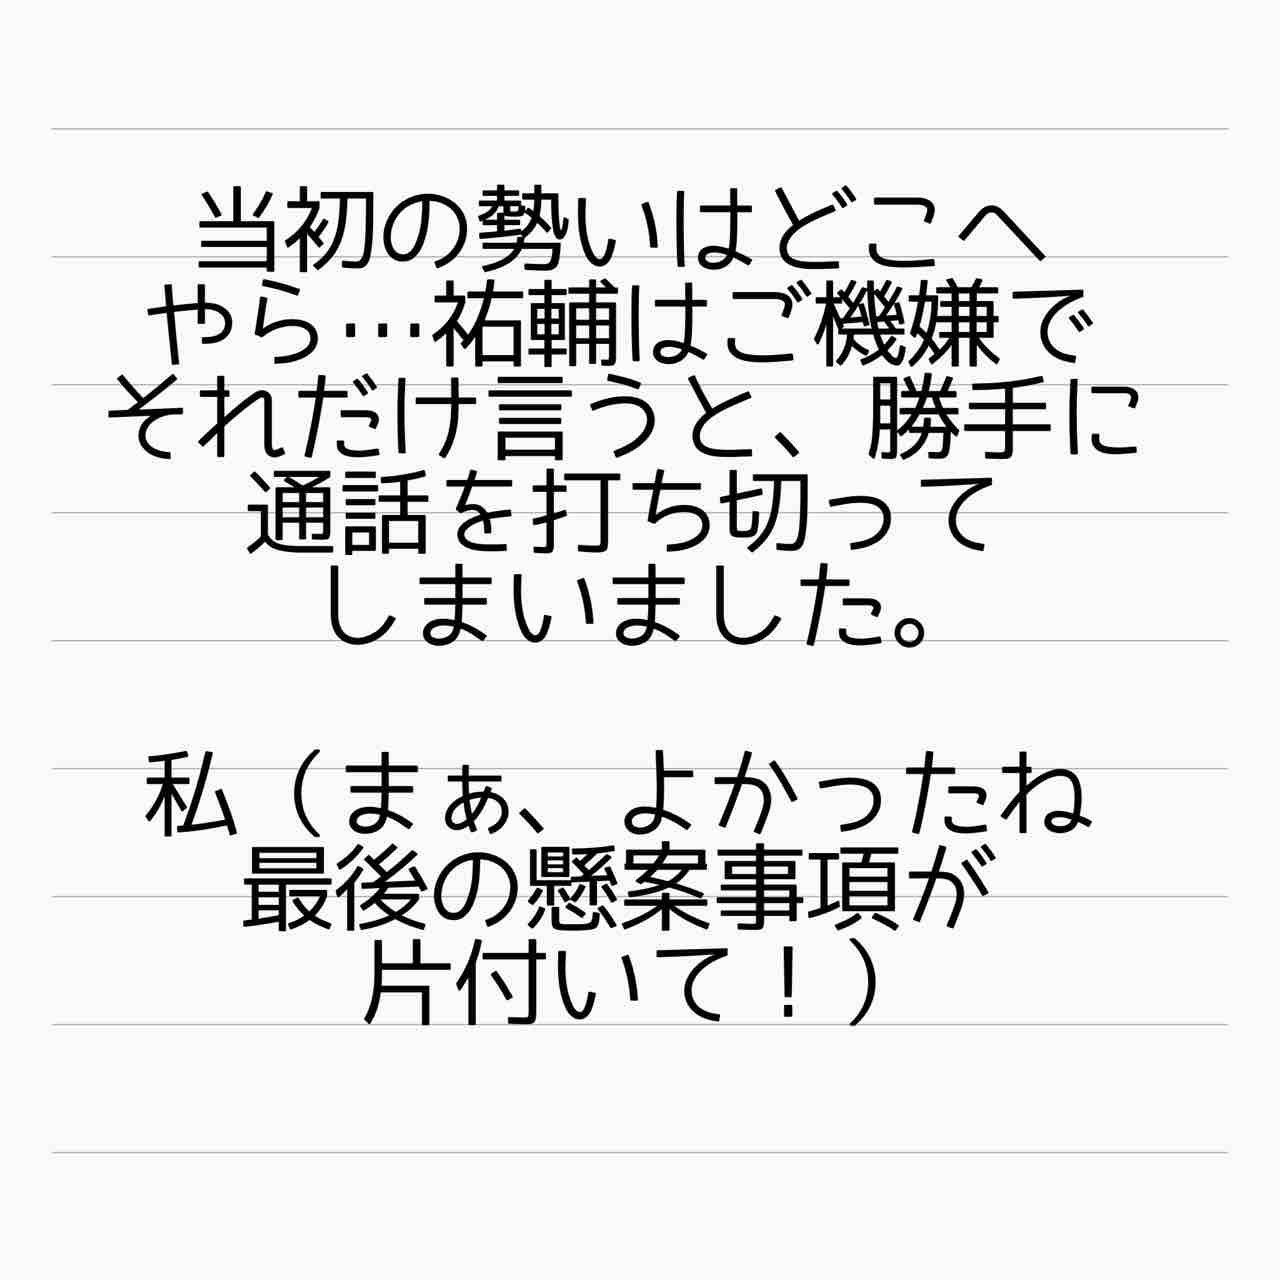 当初の勢いはどこへ
やら…祐輔はご機嫌で
それだけ言うと、勝手に
通話を打ち切って
しまいました。
私（まぁ、よかったね
最後の懸案事項が
片付いて！）